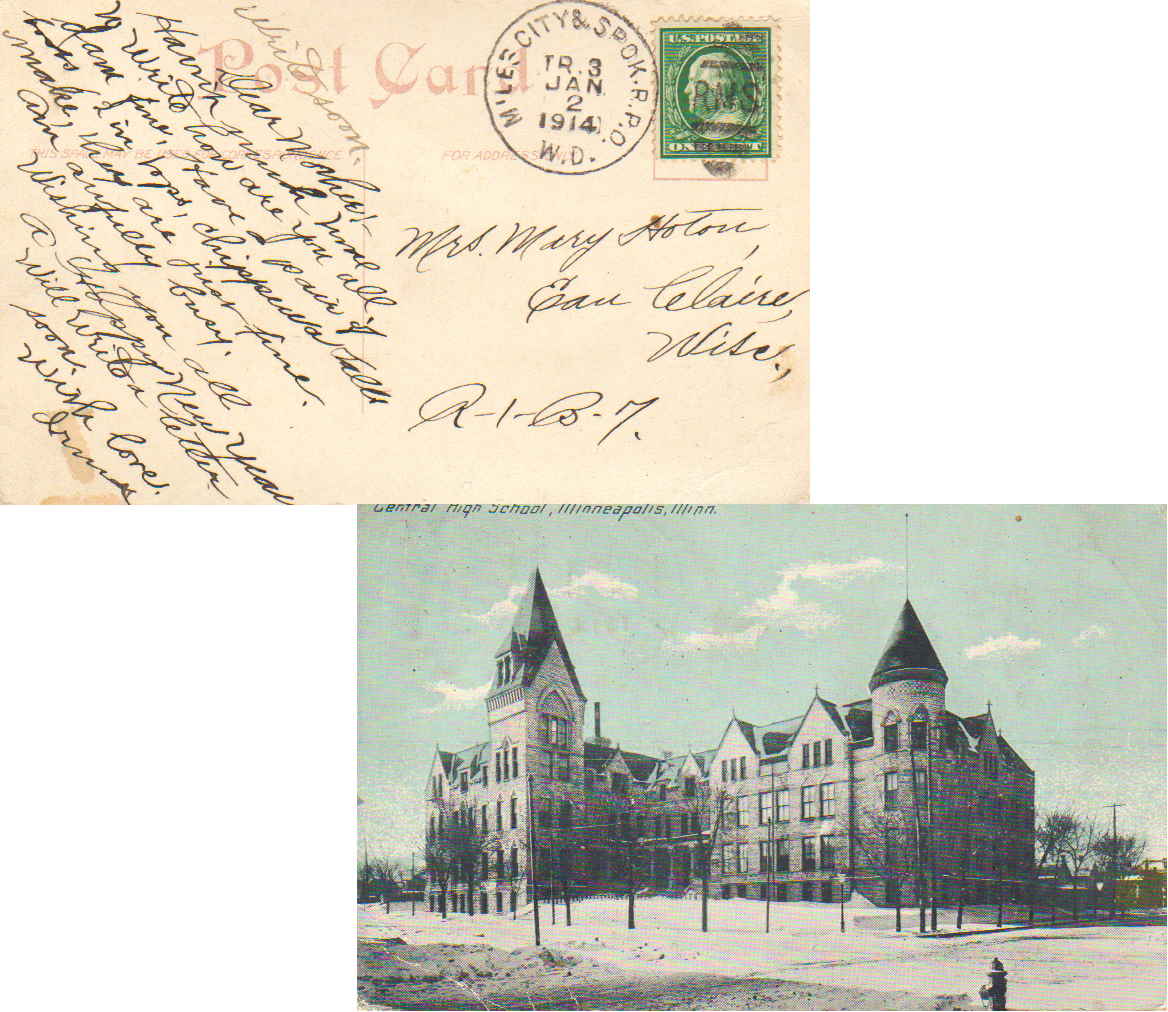 Write soon.
Post Card
THIS SPACE MAY BE USED FOR CORRESPONDENCE
FOR ADDRESS ONLY
MILES CITY & SPOK. R.P.O.
TR. 3
JAN
2
1914
W.D.
U.S. POSTAGE
R.M.S.
Dear Mother:-
Havin much time
to Write how are you all.
I am fine, Have a pair of
boys, chippewa Falls
make, they are just fine.
am awfully busy.
Wishing you all
a Happy New Year
Will Write a letter
soon.
With love.
Mrs. Mary Hoton,
Eau Claire,
Wisc.,
R-1-B-7.
Central High School, Minneapolis, Minn.